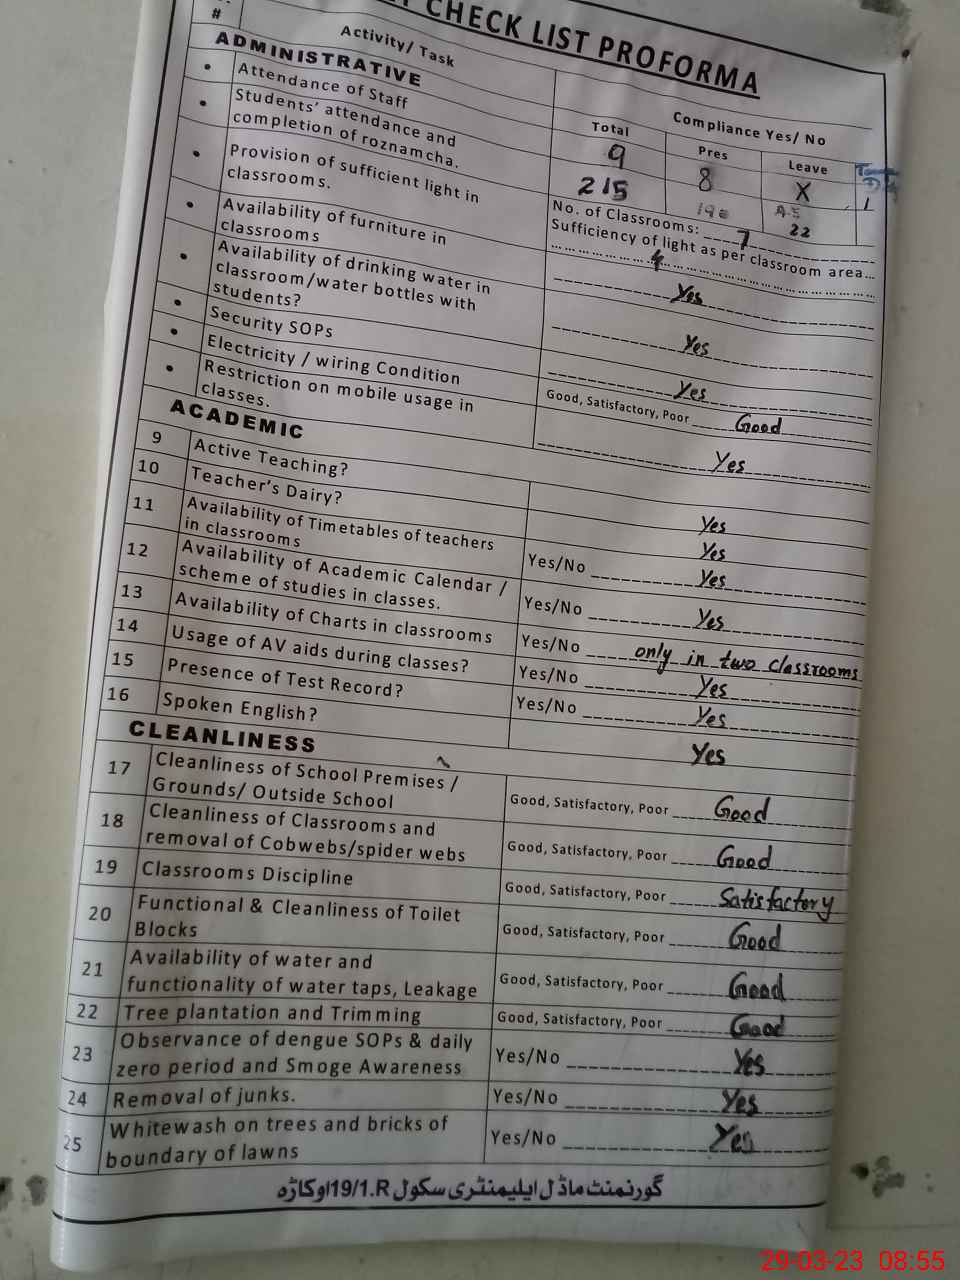 CHECK LIST PROFORMA
#
Activity/ Task
Compliance Yes/ No
ADMINISTRATIVE
• Attendance of Staff
Total Pres Leave
9 8 X 1
• Students' attendance and
completion of roznamcha.
215 22
• Provision of sufficient light in
classrooms.
No. of Classrooms: 7
Sufficiency of light as per classroom area...
4
• Availability of furniture in
classrooms
Yes
• Availability of drinking water in
classroom/water bottles with
students?
Yes
• Security SOPs
Yes
• Electricity / wiring Condition
Good, Satisfactory, Poor Good
• Restriction on mobile usage in
classes.
Yes
ACADEMIC
9 Active Teaching? Yes
10 Teacher's Dairy? Yes
11 Availability of Timetables of teachers
in classrooms
Yes/No Yes
12 Availability of Academic Calendar /
scheme of studies in classes.
Yes/No Yes
13 Availability of Charts in classrooms
Yes/No only in two classrooms
14 Usage of AV aids during classes?
Yes/No Yes
15 Presence of Test Record?
Yes/No Yes
16 Spoken English? Yes
CLEANLINESS
17 Cleanliness of School Premises /
Grounds/ Outside School
Good, Satisfactory, Poor Good
18 Cleanliness of Classrooms and
removal of Cobwebs/spider webs
Good, Satisfactory, Poor Good
19 Classrooms Discipline
Good, Satisfactory, Poor Satisfactory
20 Functional & Cleanliness of Toilet
Blocks
Good, Satisfactory, Poor Good
21 Availability of water and
functionality of water taps, Leakage
Good, Satisfactory, Poor Good
22 Tree plantation and Trimming
Good, Satisfactory, Poor Good
23 Observance of dengue SOPs & daily
zero period and Smoge Awareness
Yes/No Yes
24 Removal of junks.
Yes/No Yes
25 Whitewash on trees and bricks of
boundary of lawns
Yes/No Yes
گورنمنٹ ماڈل ایلیمنٹری سکول 19/1.R اوکاڑہ
29-03-23 08:55